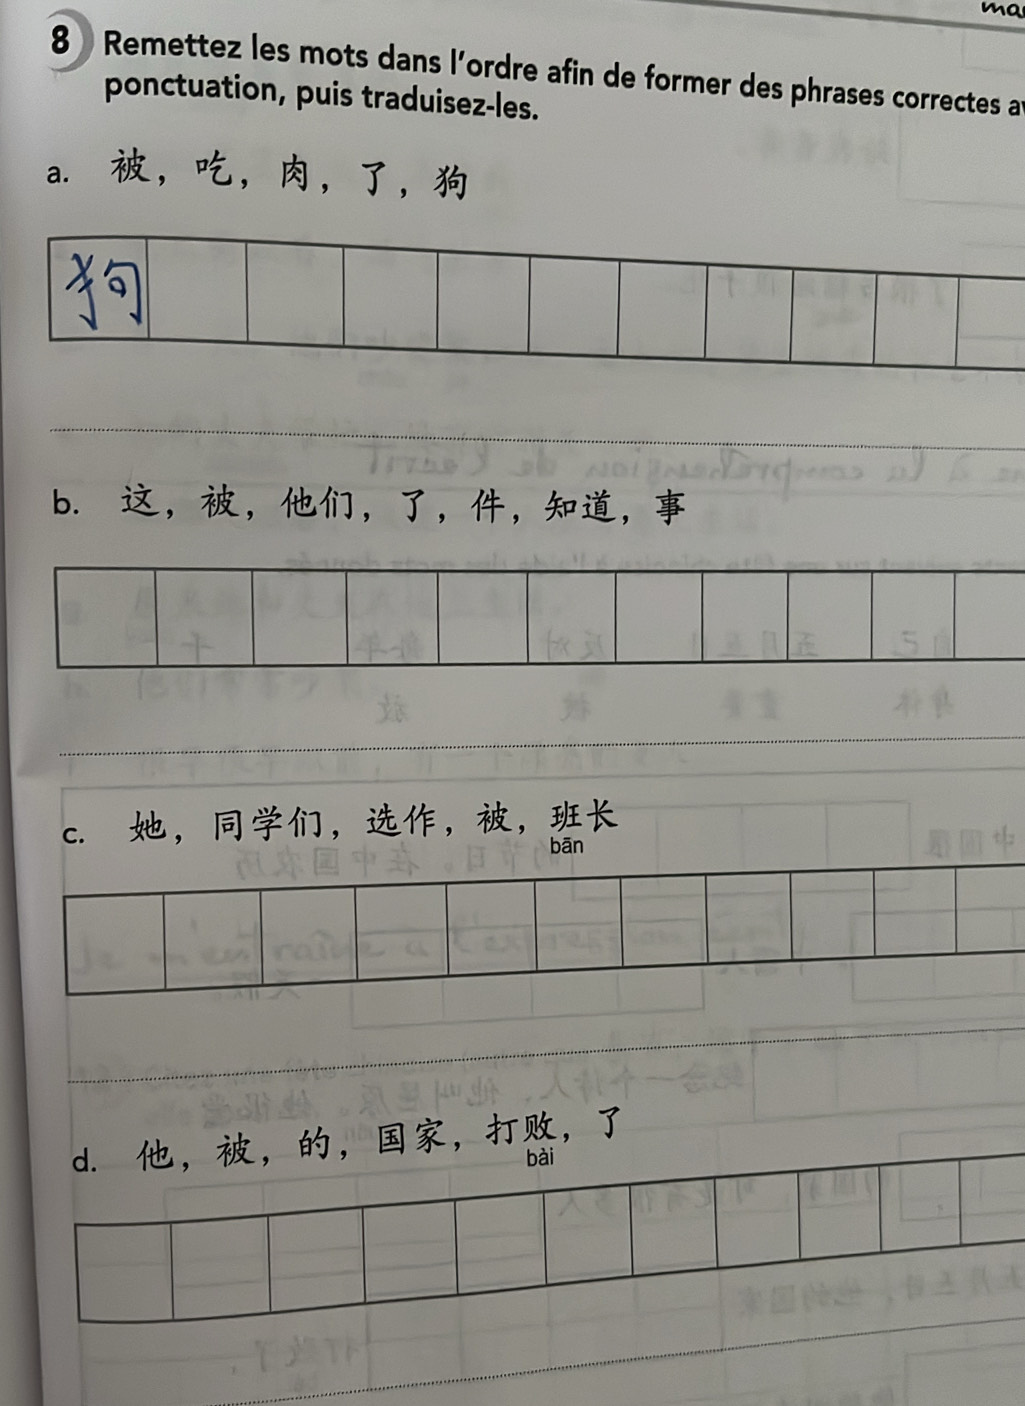 8 Remettez les mots dans l'ordre afin de former des phrases correctes
ponctuation, puis traduisez-les.
a. 被，吃，肉，了，狗
狗
b. 这，被，他们，了，件，知道，事
c. 她，同学们，选作，被，班长
bān
d. 他，被，的，国家，打败，了
bài